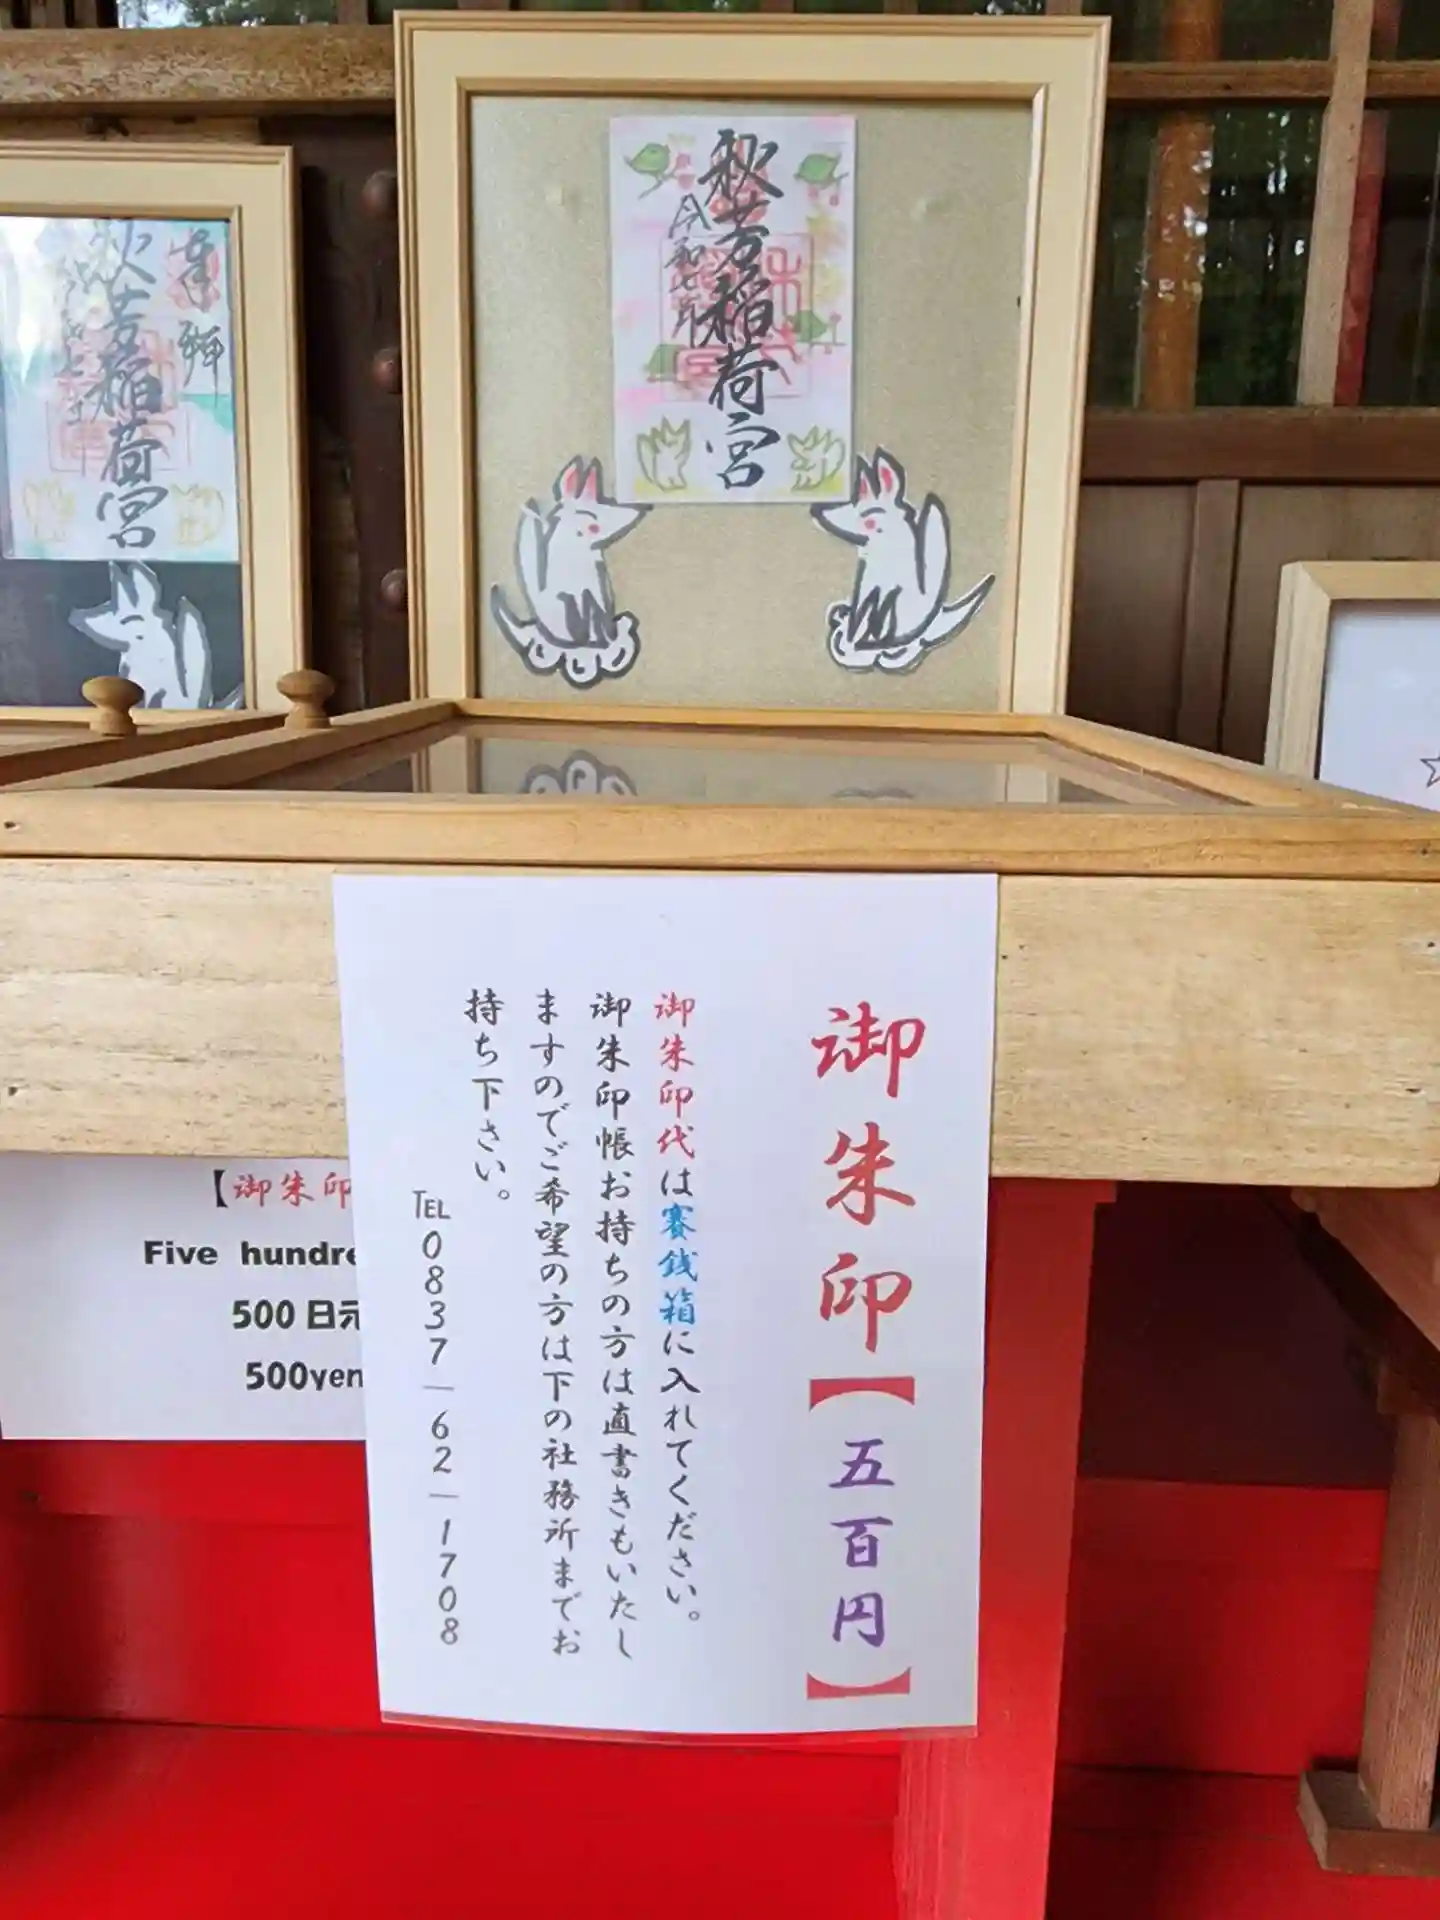 奉拝
秋芳稲荷宮
秋芳稲荷宮
令和七年
御朱印【五百円】
御朱印代は賽銭箱に入れてください。
御朱印帳お持ちの方は直書きもいたし
ますのでご希望の方は下の社務所までお
持ち下さい。
TEL 0837―62―1708
【御朱印
Five hundre
500日元
500yen
☆